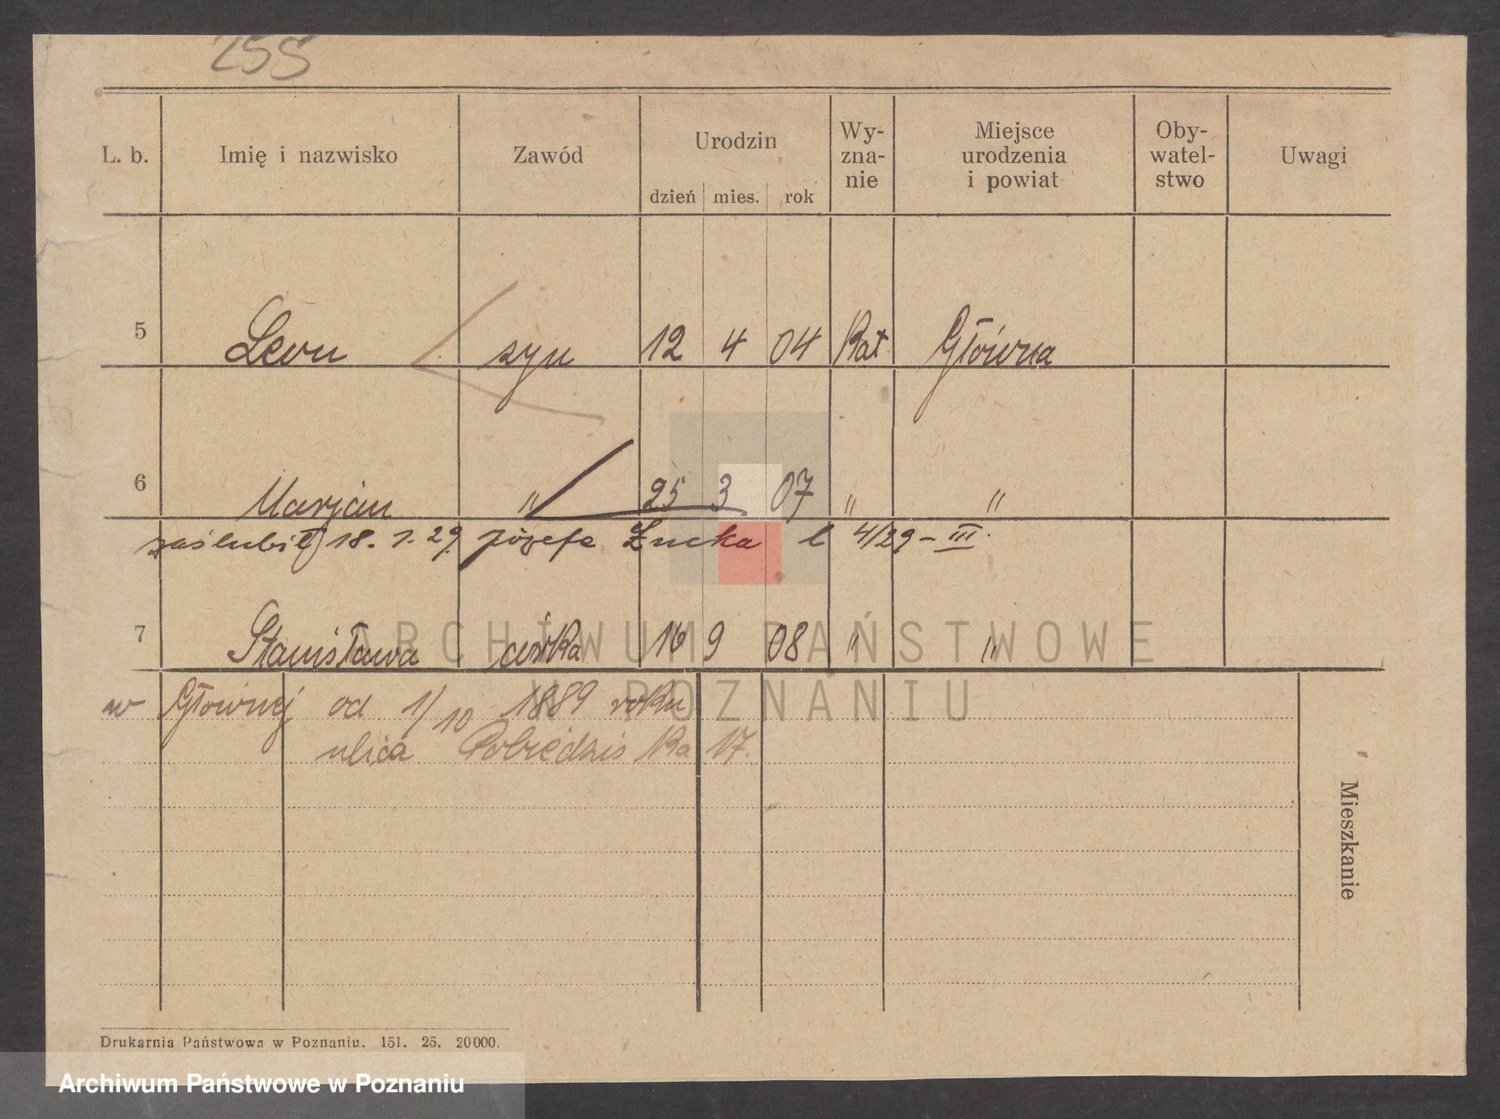 255
L. b. Imię i nazwisko Zawód Urodzin dzień mies. rok Wy- zna- nie Miejsce urodzenia i powiat Oby- watel- stwo Uwagi
5 Leon syn 12 4 04 Kat Główna
6 Marjan " 25 3 07 " "
zaślubił 18. 1. 29. Józefę Żucka l 4/29 – III.
7 Stanisława córka 16 9 08 " "
w Głównej od 1/10 1889 roku
ulica Pobiedziska 17.
Mieszkanie
Drukarnia Państwowa w Poznaniu. 151. 25. 20000.
ARCHIWUM PAŃSTWOWE
W POZNANIU
Archiwum Państwowe w Poznaniu